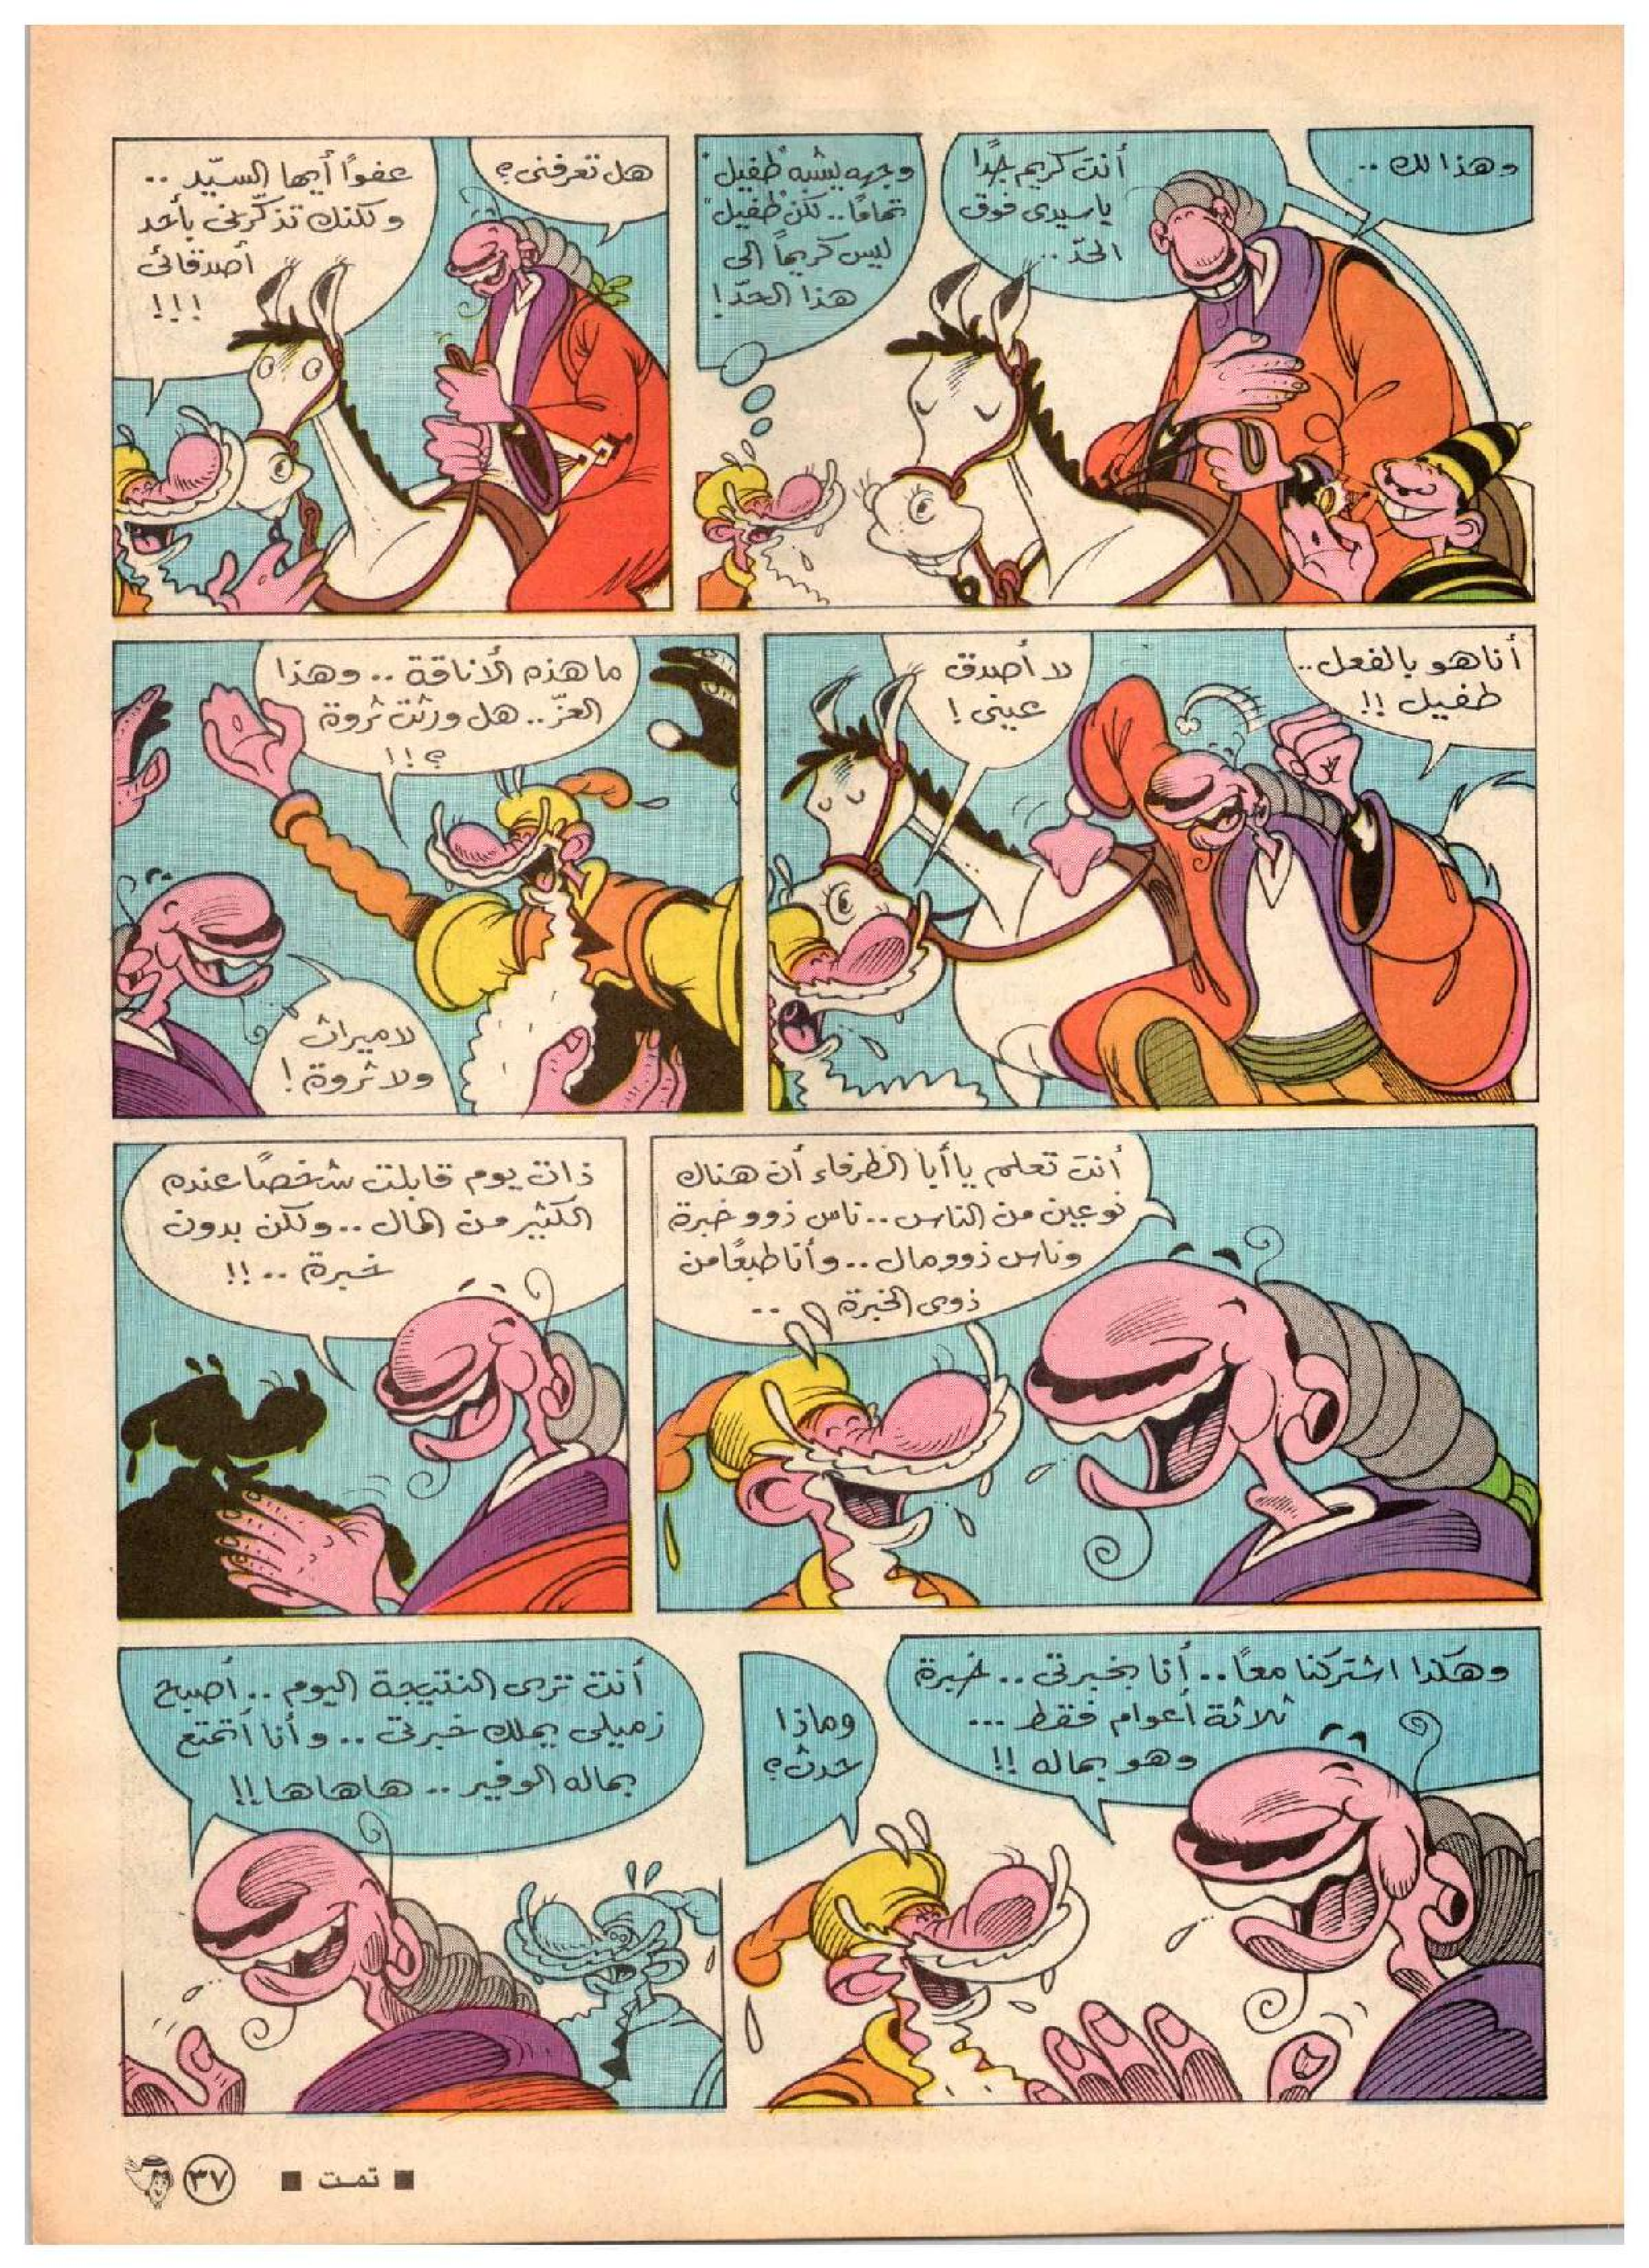 وهذا لك ..
أنت كريم جدًا
ياسيدى فوق
الحدّ ..
وجهه يشبه "طفيل"
تمامًا .. لكن "طفيل"
ليس كريمًا إلى
هذا الحدّ !
هل تعرفنى ؟
عفوًا أيها السيّد ..
ولكنك تذكّرنى بأحد
أصدقائى
!!!
أنا هو بالفعل ..
طفيل !!
لا أصدق
عينى !
ما هذه الأناقة .. وهذا
العزّ .. هل ورثت ثروة
؟!!
لا ميراث
ولا ثروة !
أنت تعلم يا أبا الظرفاء أن هناك
نوعين من الناس .. ناس ذوو خبرة
وناس ذوو مال .. وأنا طبعًا من
ذوى الخبرة ..
ذات يوم قابلت شخصًا عنده
الكثير من المال .. ولكن بدون
خبرة .. !!
وهكذا اشتركنا معًا .. أنا بخبرتى .. خبرة
ثلاثة أعوام فقط ...
وهو بماله !!
وماذا
حدث ؟
أنت ترى النتيجة اليوم .. أصبح
زميلى يملك خبرتى .. وأنا أتمتع
بماله الوفير .. هاهاها !!
■ تمت ■
٣٧